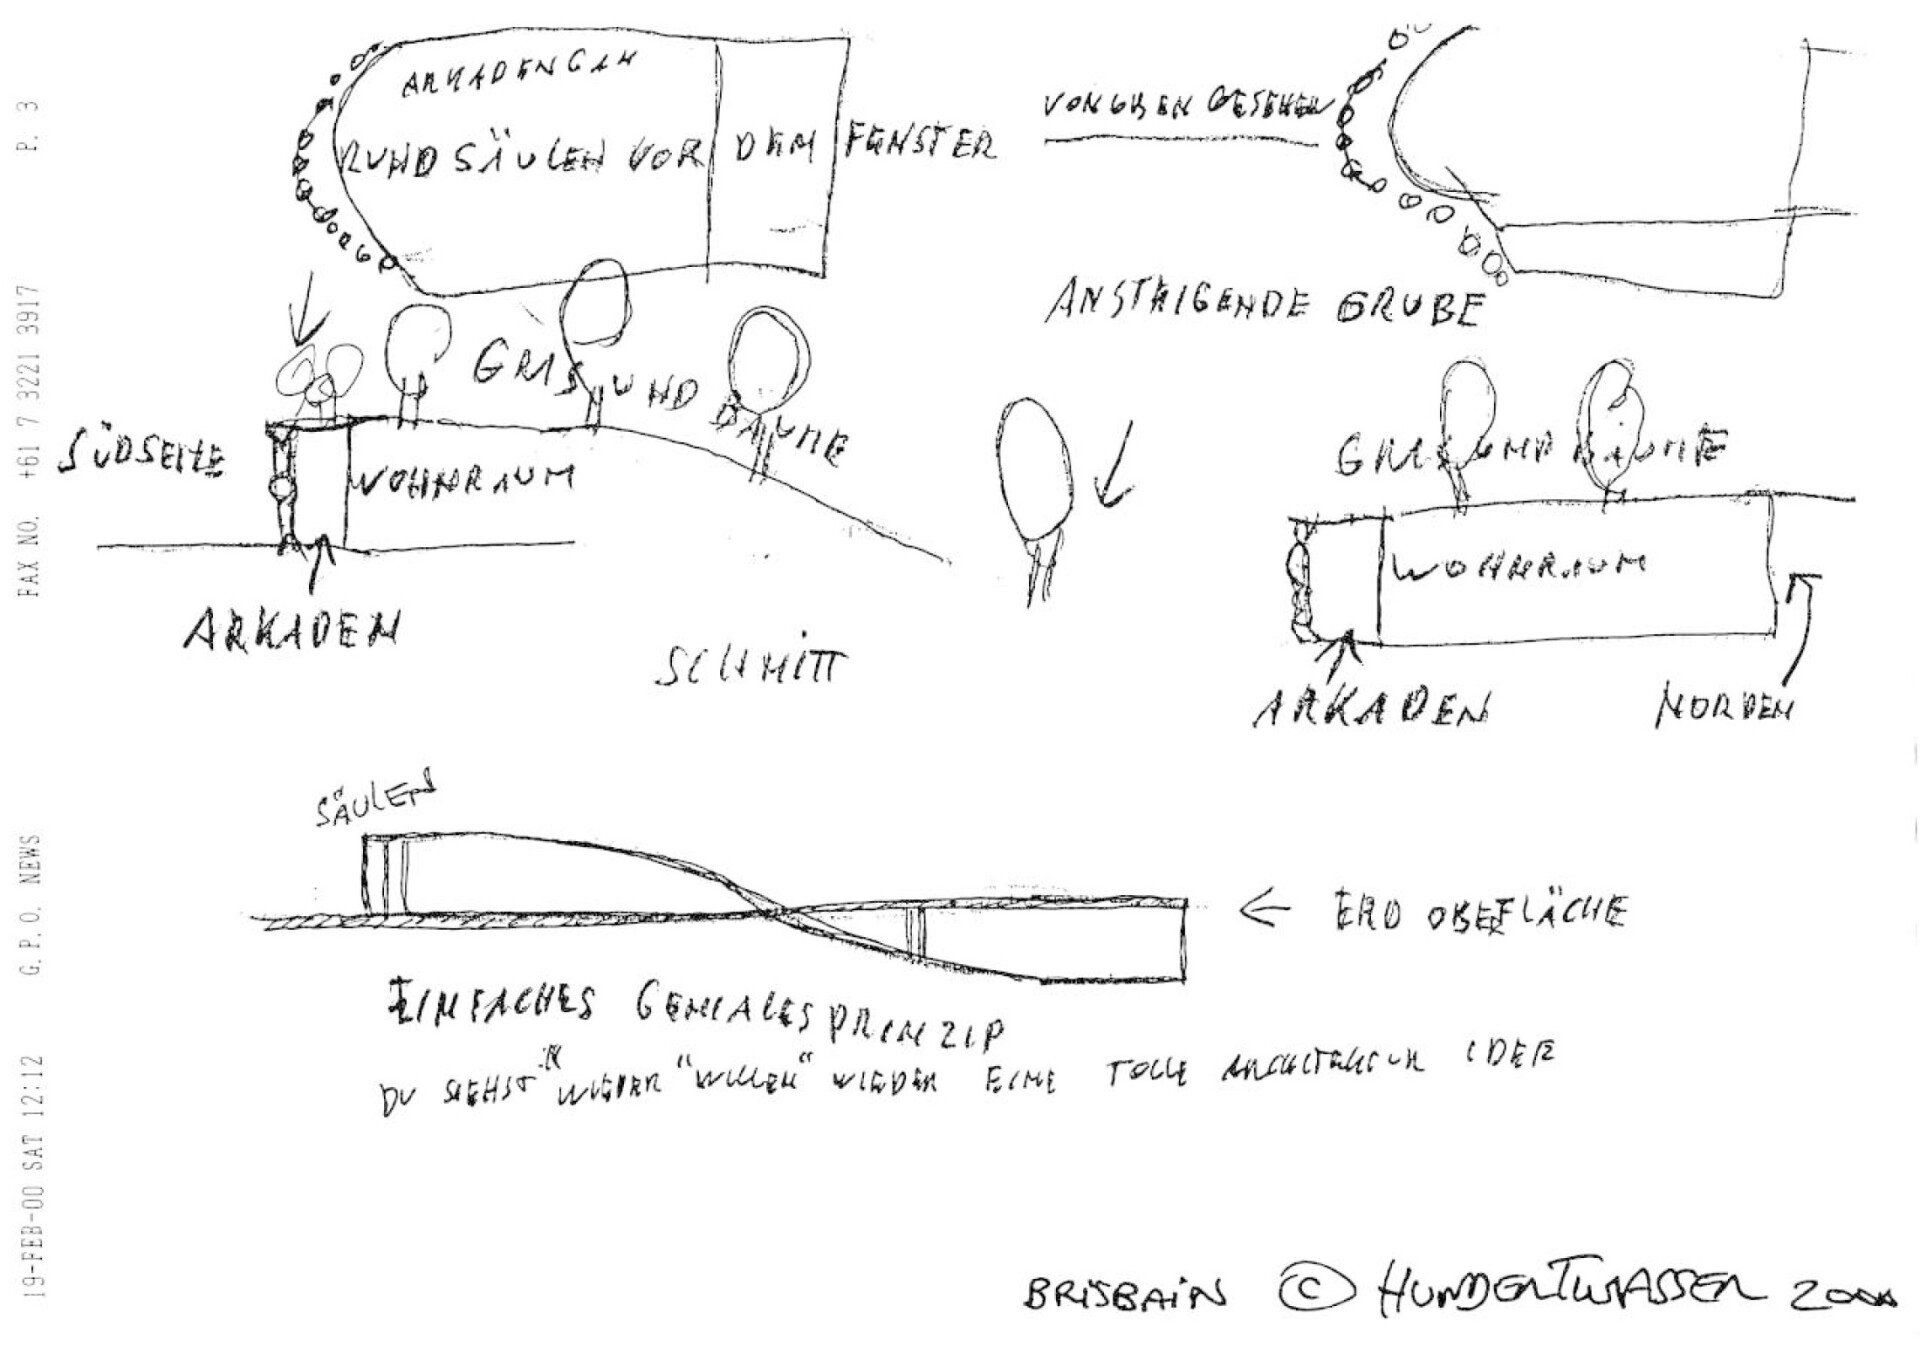 P. 3
FAX NO. +61 7 3221 3917
G. P. O. NEWS
19-FEB-00 SAT 12:12
ARKADENGAN
RUNDSÄULEN VOR DEM FENSTER
VON OBEN GESEHEN
ANSTEIGENDE GRUBE
GRAS UND BÄUME
SÜDSEITE
WOHNRAUM
ARKADEN
SCHNITT
GRAS UND BÄUME
WOHNRAUM
ARKADEN
NORDEN
SÄULEN
← ERD OBERFLÄCHE
EINFACHES GENIALES PRINZIP
DU SIEHST WIEDER WIEDER EINE TOLLE IDEE
BRISBAIN © HUNDERTWASSER 2000